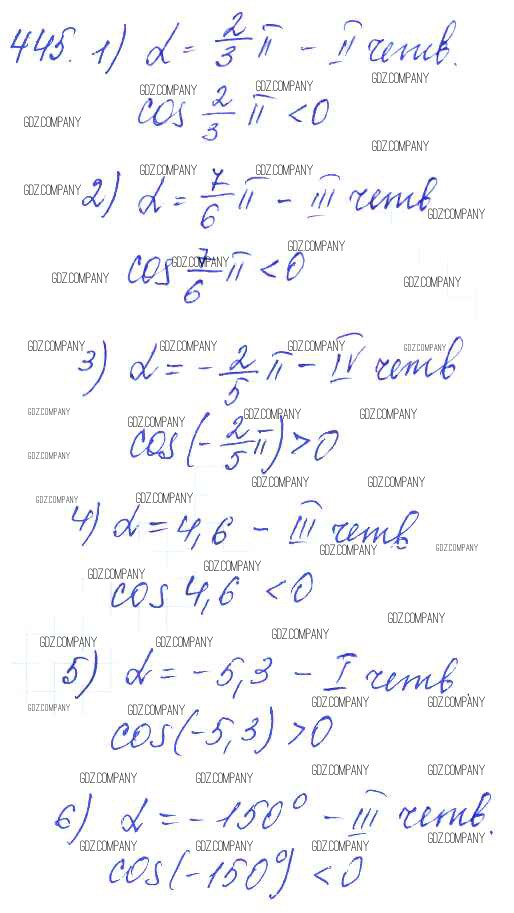 445. 1) α = 2/3 π - II четв.
GDZ.COMPANY
GDZ.COMPANY GDZ.COMPANY
cos 2/3 π < 0
GDZ.COMPANY
GDZ.COMPANY
GDZ.COMPANY GDZ.COMPANY
GDZ.COMPANY
2) α = 7/6 π - III четв
GDZ.COMPANY
GDZ.COMPANY
GDZ.COMPANY
cos 7/6 π < 0
GDZ.COMPANY GDZ.COMPANY
GDZ.COMPANY GDZ.COMPANY GDZ.COMPANY GDZ.COMPANY
3) α = - 2/5 π - IV четв
GDZ.COMPANY GDZ.COMPANY GDZ.COMPANY
GDZ.COMPANY
cos (- 2/5 π) > 0
GDZ.COMPANY
GDZ.COMPANY GDZ.COMPANY
GDZ.COMPANY GDZ.COMPANY
4) α = 4,6 - III четв.
GDZ.COMPANY GDZ.COMPANY
GDZ.COMPANY GDZ.COMPANY
cos 4,6 < 0
GDZ.COMPANY
GDZ.COMPANY GDZ.COMPANY GDZ.COMPANY
5) α = - 5,3 - I четв.
GDZ.COMPANY GDZ.COMPANY GDZ.COMPANY GDZ.COMPANY
cos (-5,3) > 0
GDZ.COMPANY GDZ.COMPANY GDZ.COMPANY GDZ.COMPANY
6) α = - 150° - III четв.
GDZ.COMPANY GDZ.COMPANY GDZ.COMPANY GDZ.COMPANY
cos (-150°) < 0